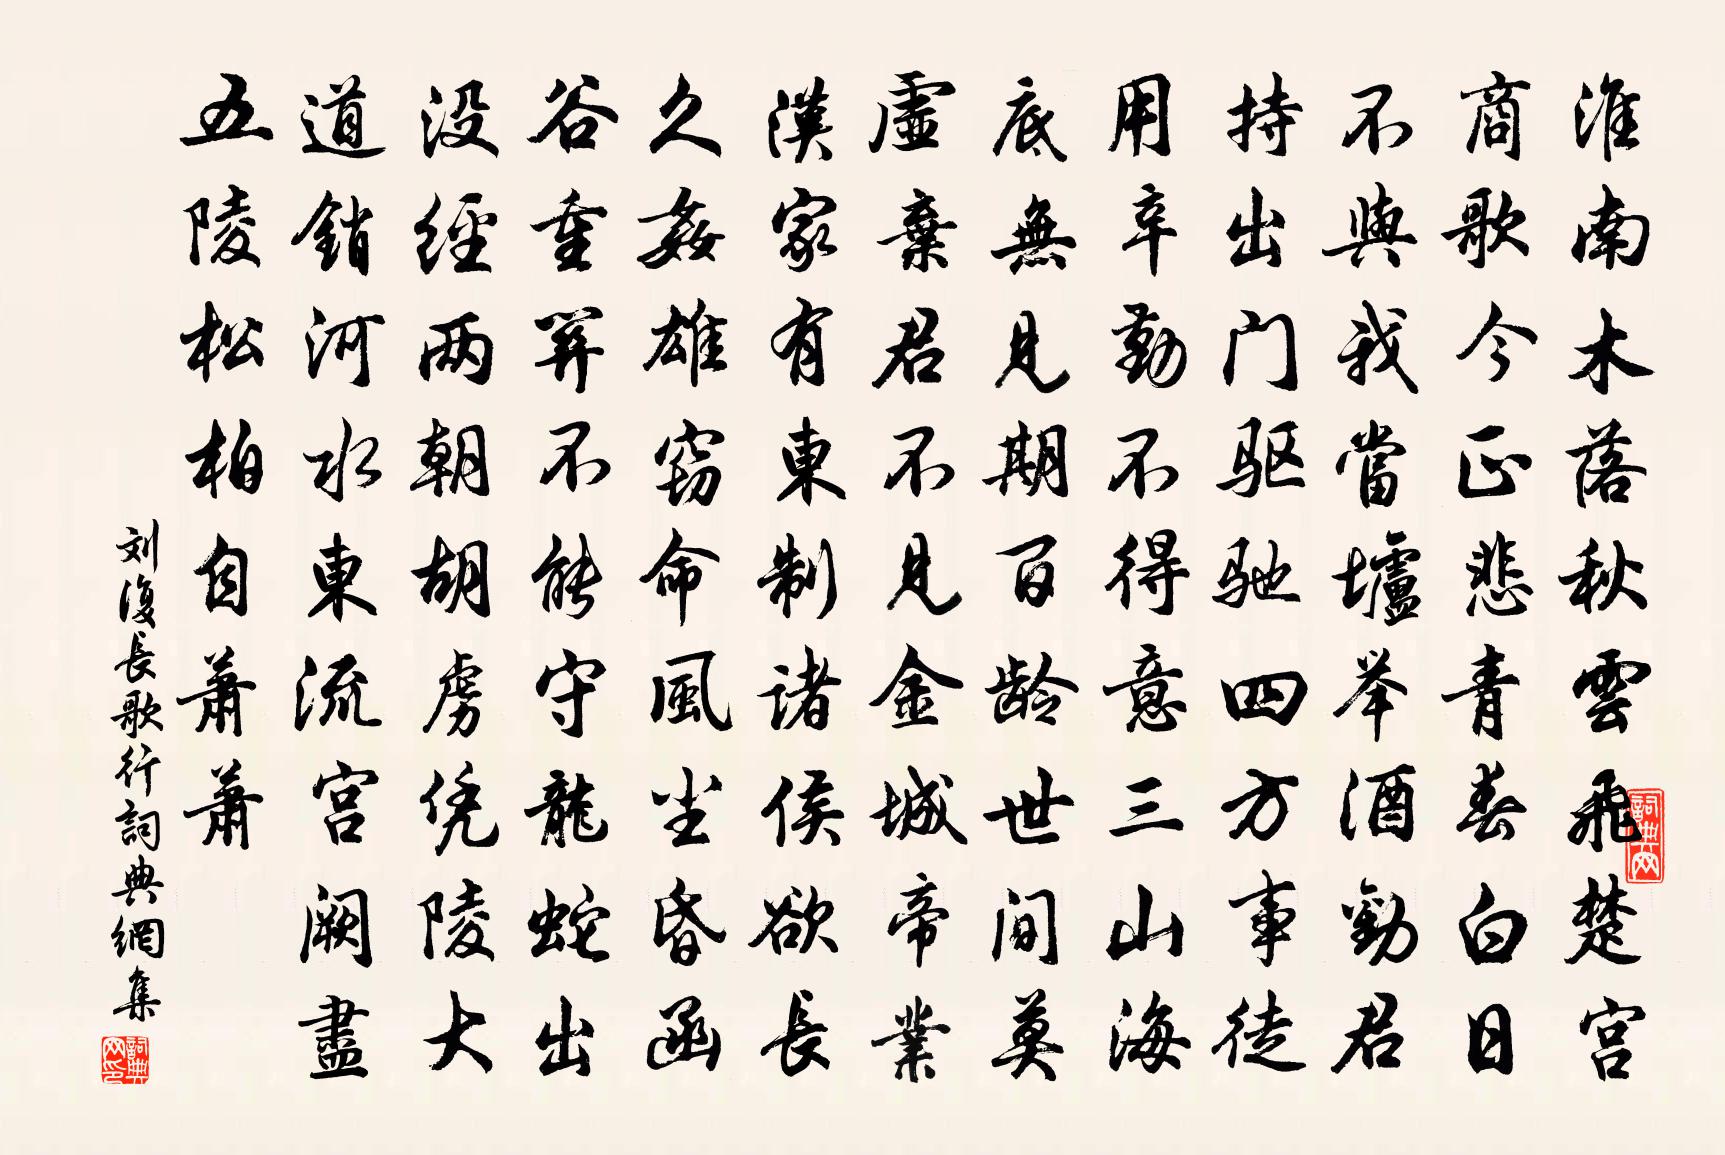 淮南木落秋雲飛楚宮
商歌今正悲青春白日
不與我當壚举酒勸君
持出门驱驰四方事徒
用辛勤不得意三山海
底無見期百龄世間莫
虛棄君不見金城帝業
漢家有東制诸侯欲長
久姦雄窃命風尘昏函
谷重關不能守龍蛇出
没經两朝胡虏凭陵大
道銷河水東流宮阙盡
五陵松柏自蕭蕭
刘復長歌行詞典網集
詞典网
詞典网